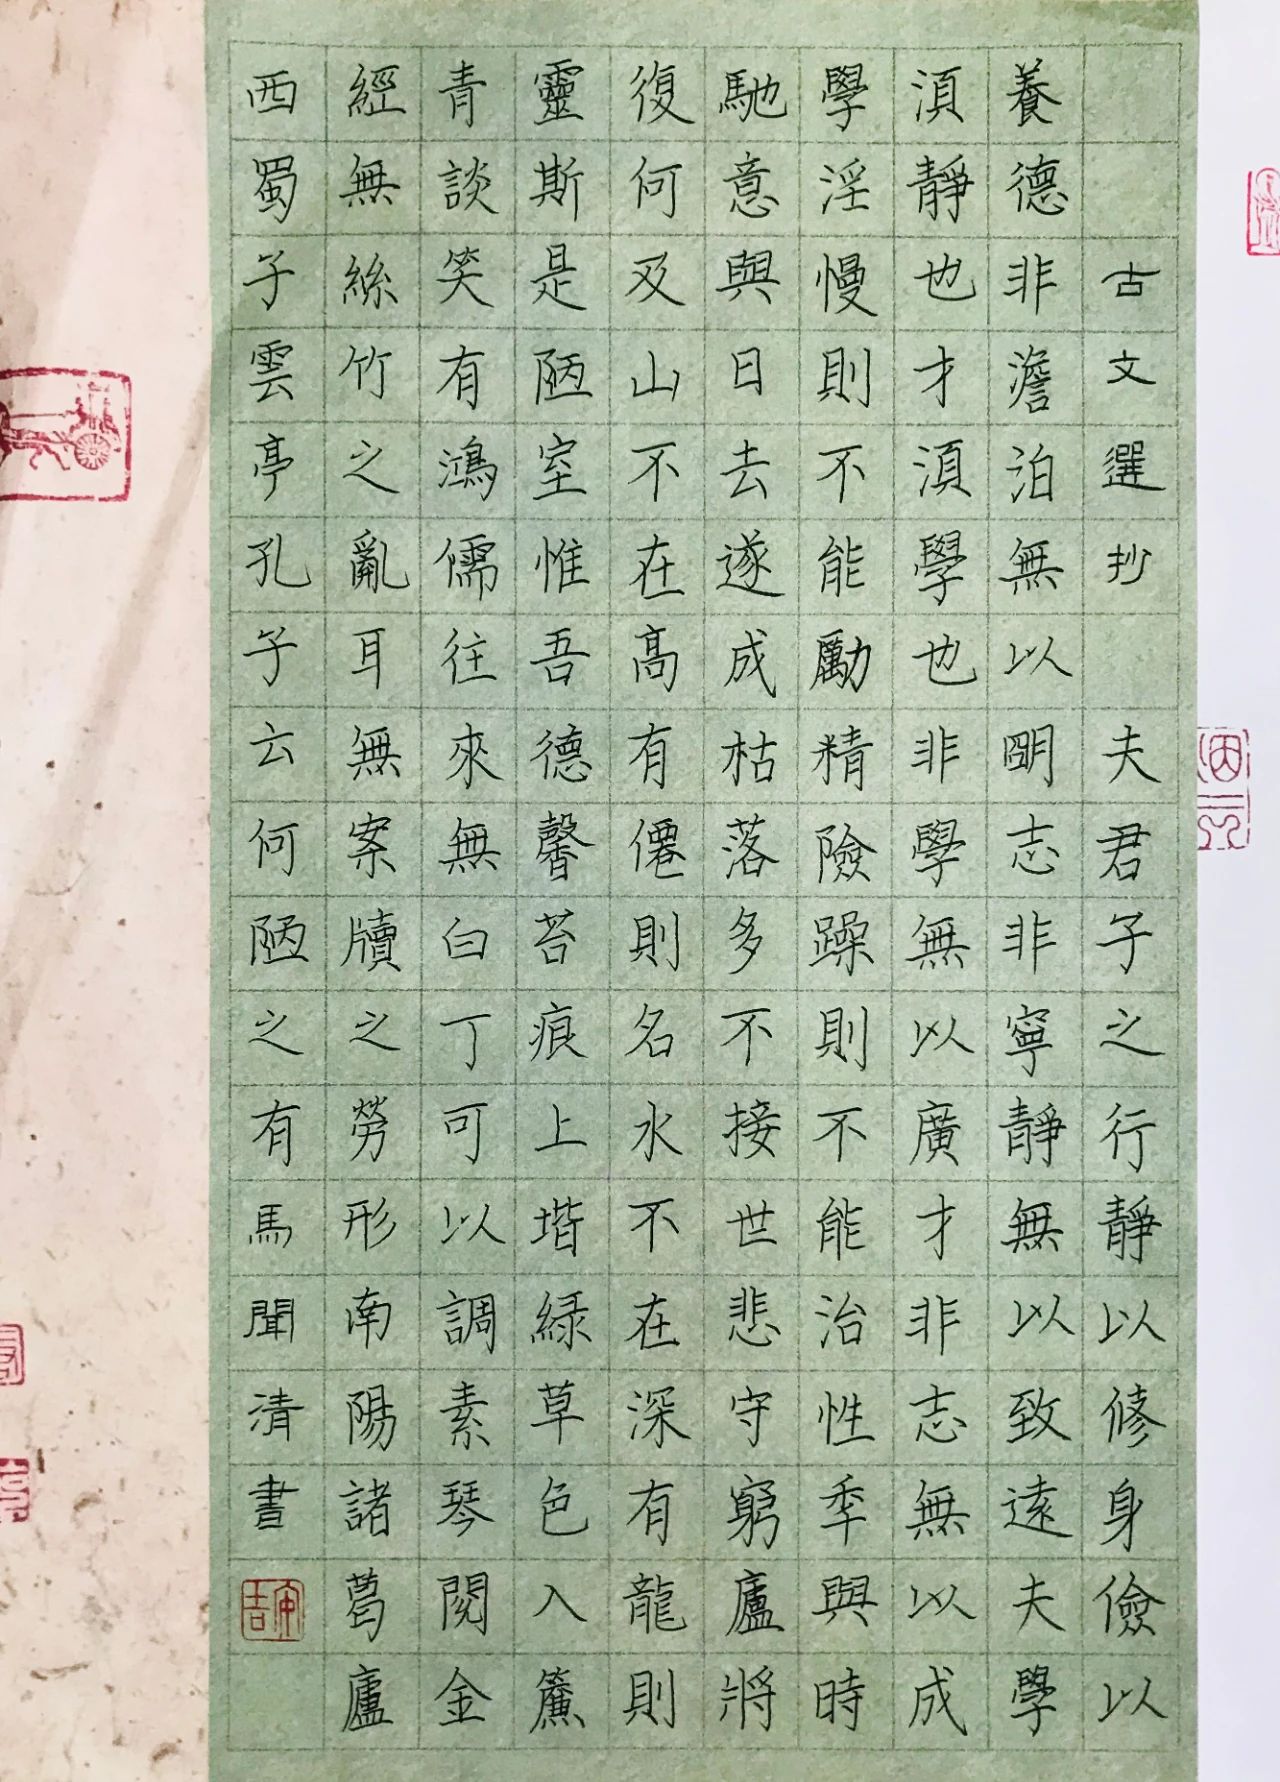 古文選抄 夫君子之行靜以修身儉以
養德非澹泊無以眀志非寧靜無以致遠夫學
湏靜也才湏學也非學無以廣才非志無以成
學淫慢則不能勵精險躁則不能治性秊與時
馳意與日去遂成枯落多不接世悲守窮廬將
復何及山不在高有僊則名水不在深有龍則
靈斯是陋室惟吾德馨苔痕上堦緑草色入簾
青談笑有鴻儒往來無白丁可以調素琴閱金
經無絲竹之亂耳無案牘之勞形南陽諸葛廬
西蜀子雲亭孔子云何陋之有馬聞清書